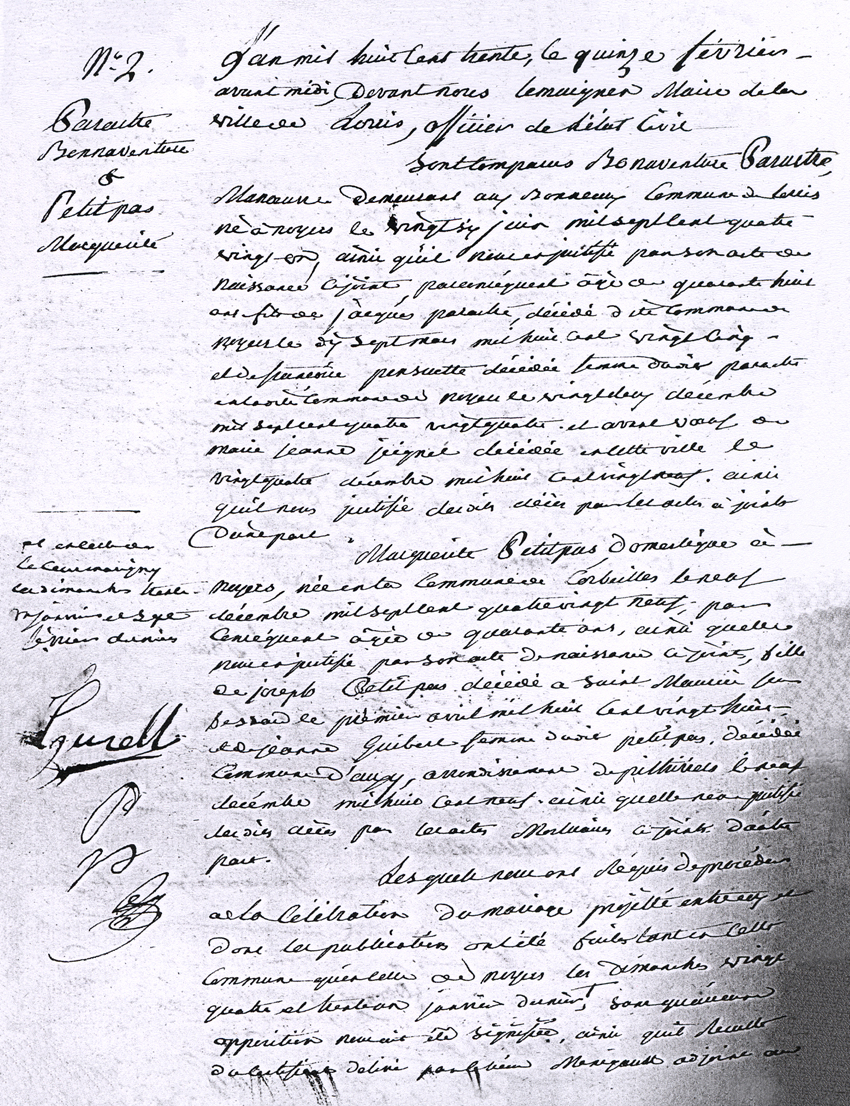 N° 2.
Paraitre
Bonnaventure
&
Petit pas
Marguerite
L'an mil huit cent trente, le quinze février
avant midi, Devant nous Lemaigner Maire de la
ville de Lorris, officier de l'état Civil
Sont comparus Bonaventure Paraitre,
Manoeuvre Demeurant aux Bonneaux Commune de Lorris
né à noyers le vingt six juin mil sept cent quatre
vingt un, ainsi qu'il nous en justifie par son acte de
naissance cijoint parconséquent âgé de quarante huit
ans fils de jacques paraitre, décédé dite Commune de
noyers le dix sept mars mil huit cent vingt cinq
et de francoise pensuette décédée femme dudit paraitre
en ladite Commune de noyers le vingt deux décembre
mil sept cent quatre vingt quatre. et avant voeuf de
marie jeanne décédée en cette ville le
vingt quatre décembre mil huit cent vingt neuf. ainsi
qu'il nous justifie desdits décès par les actes ci joints
D'une part
Marguerite Petit pas Domestique à
noyers, née en la Commune de Corbeilles le neuf
décembre mil sept cent quatre vingt neuf, par
Conséquent âgée de quarante ans, ainsi quelle
nous en justifie par son acte de naissance ci joint, fille
de joseph Petit pas décédé à Saint Maurice sur
Fessard le premier avril mil huit cent vingt huit
et de jeanne Guibert femme dudit petit pas, décédée
Commune d'auxy, arrondissement de pithiviers le neuf
décembre mil huit cent neuf. ainsi quelle nous justifie
desdits décès par les actes Mortuaires ci joints. D'autre
part.
Les quels nous ont Requis De procéder
a la Célébration du mariage projetté entre eux et
Dont les publications ont été faites tant en Cette
Commune qu'en celle de noyers les dimanches vingt
quatre et trente un janvier dernier, sans qu'aucune
opposition nous ait été signifiée, ainsi qu'il Résulte
du certificat délivré par le sieur adjoint au
et en celle de
les dimanches trente
un janvier et sept
février dernier